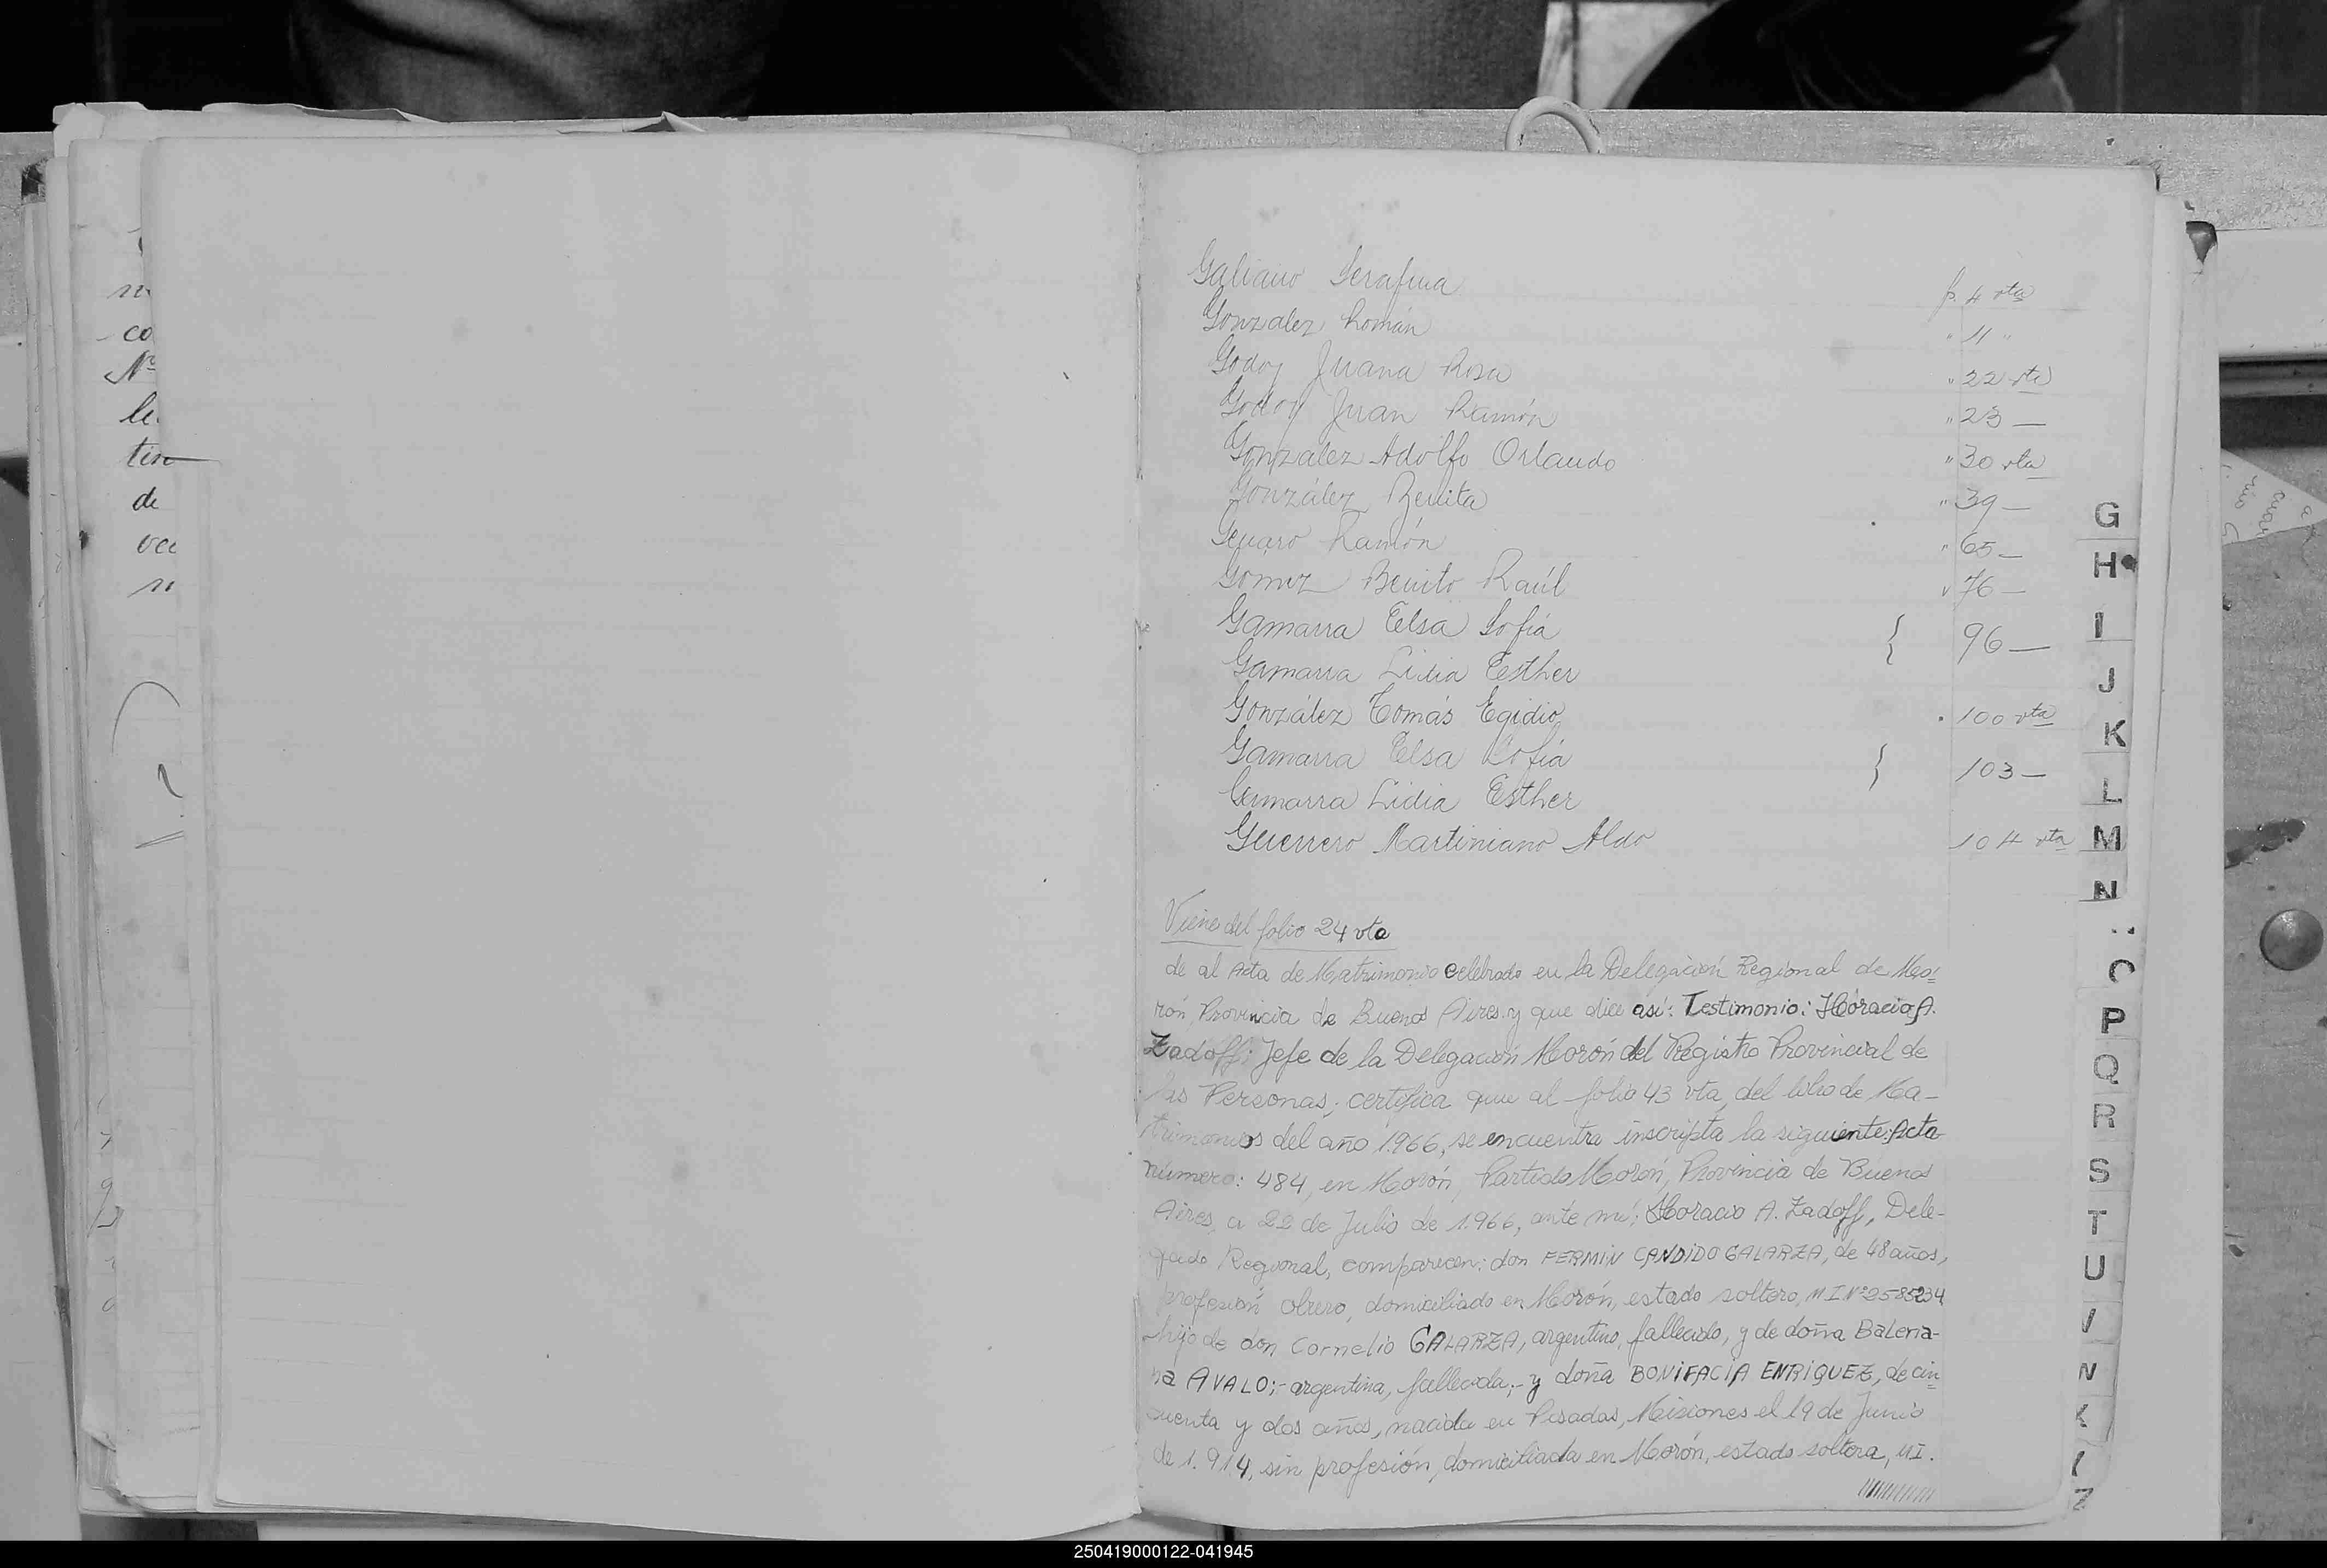 Galiano Serafina f. 4 vta
Gonzalez Román " 11 "
Godoy Juana Rosa " 22 vta
Godoy Juan Ramón " 23 —
González Adolfo Orlando " 30 vta
González Benita " 39 —
Genaro Ramón " 65 —
Gomez Benito Raúl " 76 —
Gamarra Elsa Sofía { 96 —
Gamarra Lidia Esther
González Tomás Egidio " 100 vta
Gamarra Elsa Sofía } 103 —
Gamarra Lidia Esther
Guerrero Martiniano Aldo 104 vta
Viene del folio 24 vta
de al Acta de Matrimonio celebrado en la Delegación Regional de Mo-
rón, Provincia de Buenos Aires y que dice así: Testimonio: Horacio A.
Zadoff: Jefe de la Delegación Morón del Registro Provincial de
las Personas; certifica que al folio 43 vta, del libro de Ma-
trimonios del año 1.966, se encuentra inscripta la siguiente: Acta
número: 484, en Morón, Partido Morón, Provincia de Buenos
Aires, a 22 de Julio de 1.966, ante mí; Horacio A. Zadoff, Dele-
gado Regional, comparecen: don FERMIN CANDIDO GALARZA, de 48 años,
profesión obrero, domiciliado en Morón, estado soltero, M.I.Nº 2585234
hijo de don Cornelio GALARZA, argentino, fallecido, y de doña Baleria-
na AVALO;- argentina, fallecida;- y doña BONIFACIA ENRIQUEZ, de cin-
cuenta y dos años, nacida en Posadas, Misiones el 19 de Junio
de 1.914, sin profesión, domiciliada en Morón, estado soltera, M.I.
G
H
I
J
K
L
M
N
O
P
Q
R
S
T
U
Z
co
Nº
tin
de
250419000122-041945